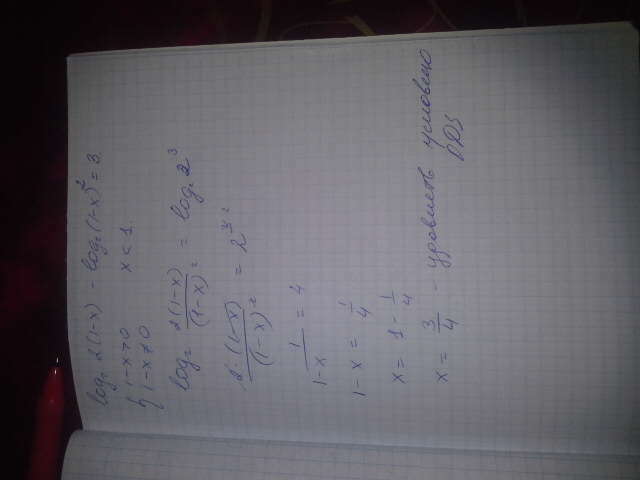 log₂ 2(1-x) - log₂(1-x)² = 3.
{ 1-x>0 x<1.
{ 1-x≠0
log₂ 2(1-x)/(1-x)² = log₂ 2³
2·(1-x)/(1-x)² = 2³ ²
1/(1-x) = 4
1-x = 1/4
x = 1 - 1/4
x = 3/4 - удовлетв условию
ODS